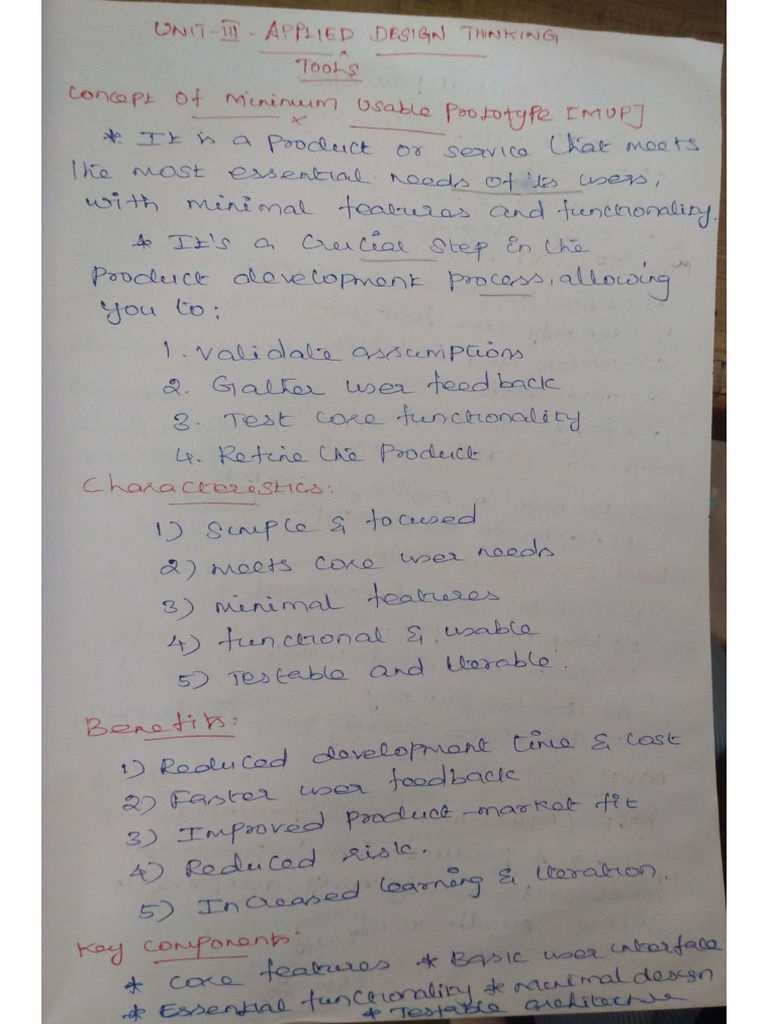 UNIT-III - APPLIED DESIGN THINKING
TOOLS
Concept of Minimum Usable Prototype [MUP]
* It is a product or service that meets
the most essential needs of its users,
with minimal features and functionality.
* It's a crucial step in the
product development process, allowing
you to:
1. Validate assumptions
2. Gather user feedback
3. Test core functionality
4. Refine the product
Characteristics:
1) Simple & focused
2) Meets core user needs
3) Minimal features
4) functional & usable
5) Testable and iterable.
Benefits:
1) Reduced development time & cost
2) Faster user feedback
3) Improved product-market fit
4) Reduced risk.
5) Increased learning & iteration.
Key components:
* Core features * Basic user interface
* Essential functionality * Minimal design
* Testable architecture